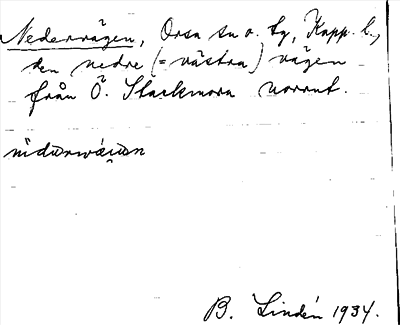 Nedervägen, Orsa sn o. tg, Kopp. l.,
den nedre (= västra) vägen
från Ö. Stackmora norrut.
B. Lindén 1934.